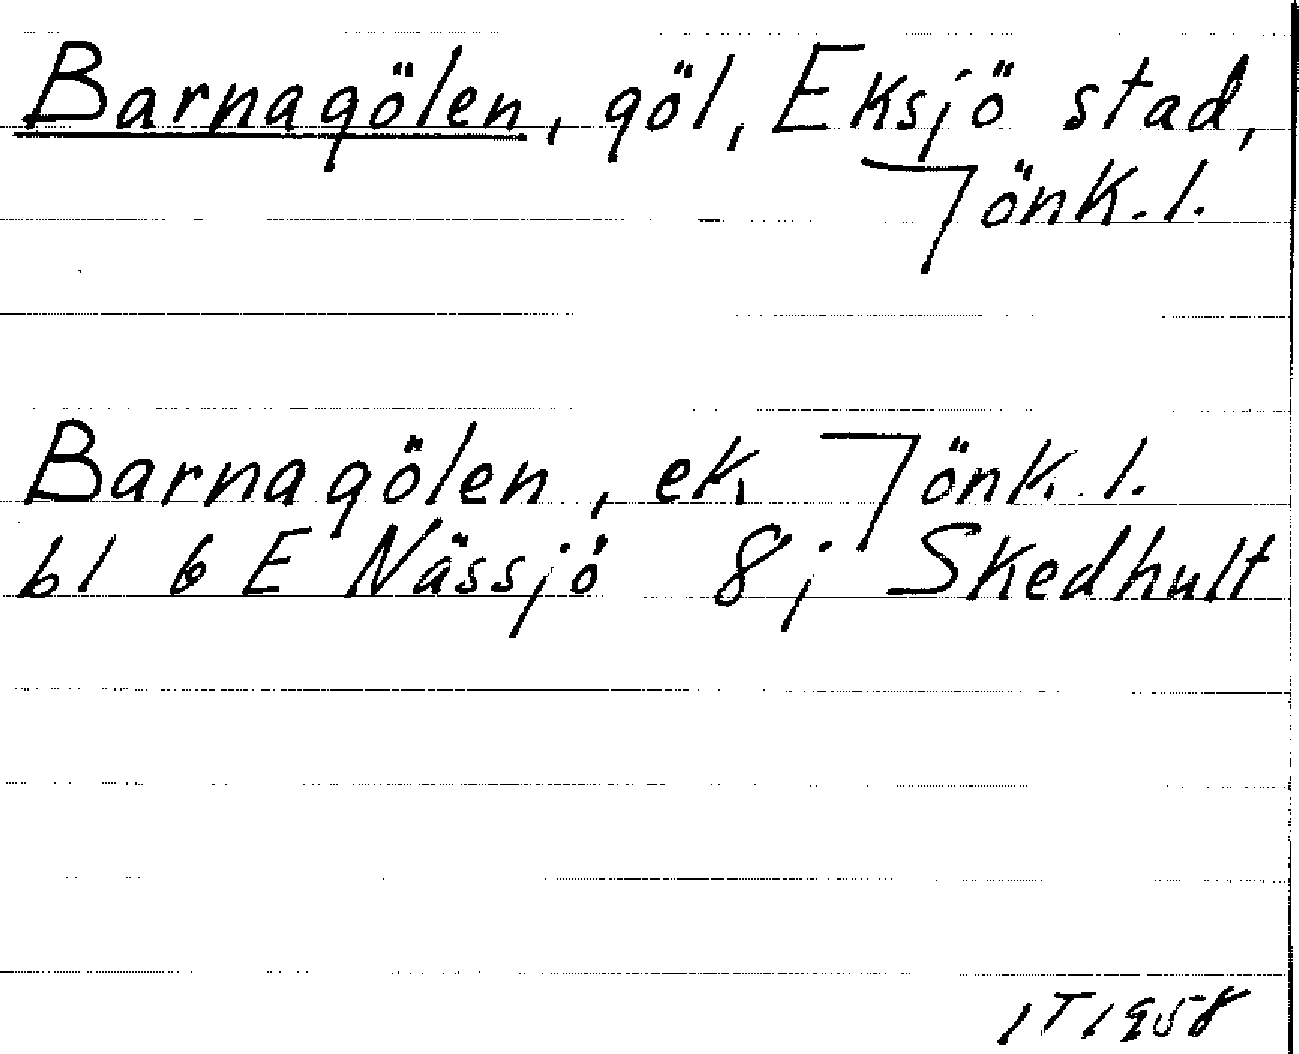 Barnagölen, göl, Eksjö stad,
Jönk. l.
Barnagölen, ek. Jönk. l.
bl 6 E Nässjö 8; Skedhult
IT 1958